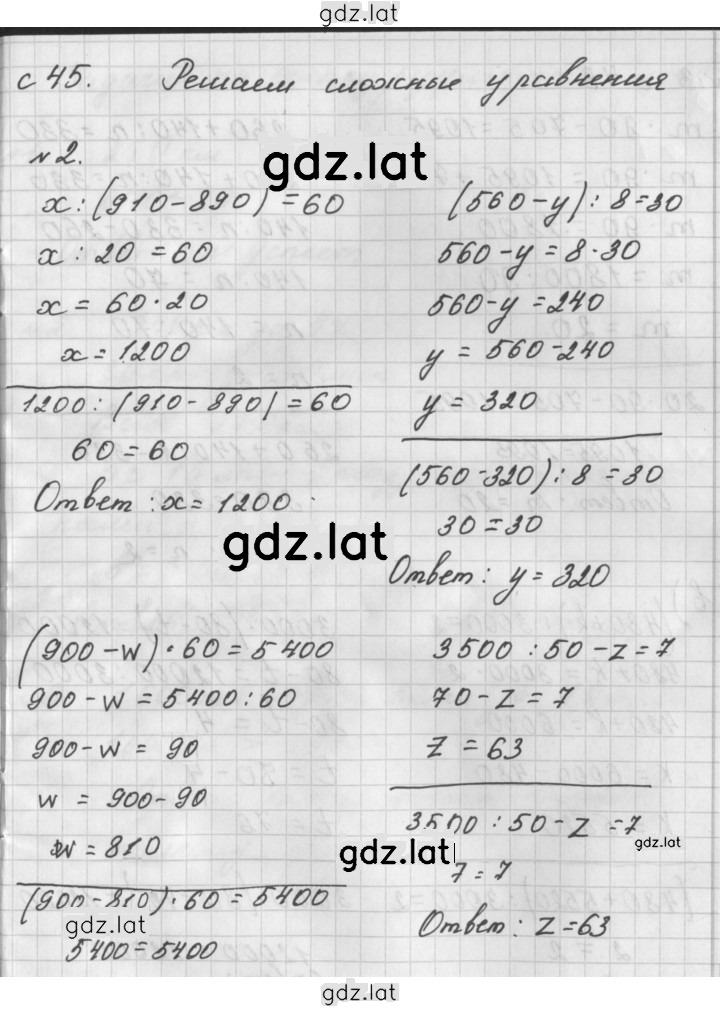 gdz.lat
с 45. Решаем сложные уравнения
№2.
gdz.lat
x : (910-890) = 60
x : 20 = 60
x = 60 · 20
x = 1200
1200 : (910-890) = 60
60 = 60
Ответ : x = 1200
(560-y) : 8 = 30
560-y = 8 · 30
560-y = 240
y = 560-240
y = 320
(560-320) : 8 = 30
30 = 30
Ответ : y = 320
gdz.lat
(900-w) · 60 = 5400
900-w = 5400 : 60
900-w = 90
w = 900-90
w = 810
(900-810) · 60 = 5400
gdz.lat
5400 = 5400
3500 : 50 - z = 7
70 - z = 7
z = 63
3500 : 50 - z = 7
gdz.lat
gdz.lat
7 = 7
Ответ : z = 63
gdz.lat